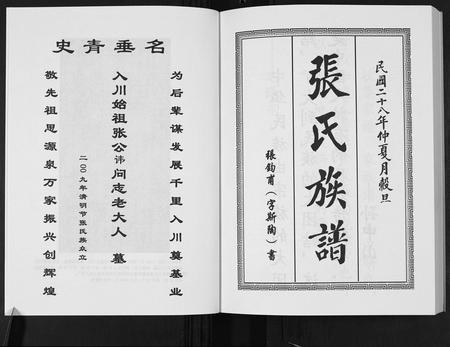 民國二十八年仲夏月穀旦
張氏族譜
張鈞甫(字斯陶)書
史青垂名
为后辈谋发展千里入川奠基业
入川始祖张公讳问志老大人墓
二00九年清明节张氏族众立
敬先祖思源泉万家振兴创辉煌